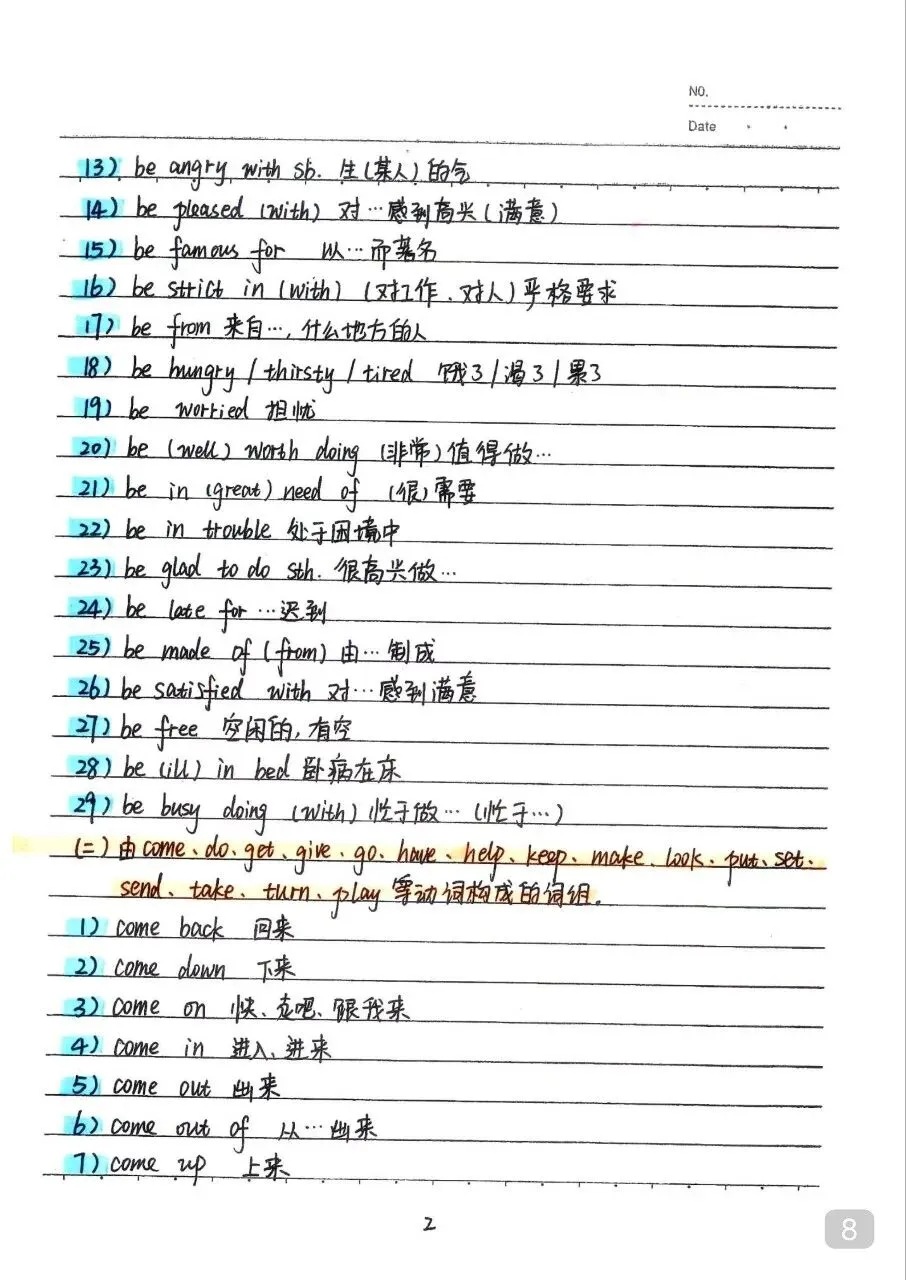 NO.
Date
13) be angry with sb. 生(某人)的气
14) be pleased (with) 对…感到高兴(满意)
15) be famous for 以…而著名
16) be strict in (with) (对工作、对人)严格要求
17) be from 来自…, 什么地方的人
18) be hungry / thirsty / tired 饿了/渴了/累了
19) be worried 担忧
20) be (well) worth doing (非常)值得做…
21) be in (great) need of (很)需要
22) be in trouble 处于困境中
23) be glad to do sth. 很高兴做…
24) be late for …迟到
25) be made of (from) 由…制成
26) be satisfied with 对…感到满意
27) be free 空闲的, 有空
28) be (ill) in bed 卧病在床
29) be busy doing (with) 忙于做…(忙于…)
(二) 由come、do、get、give、go、have、help、keep、make、look、put、set、
send、take、turn、play 等动词构成的词组.
1) come back 回来
2) come down 下来
3) come on 快、走吧、跟我来
4) come in 进入、进来
5) come out 出来
6) come out of 从…出来
7) come up 上来
2
8